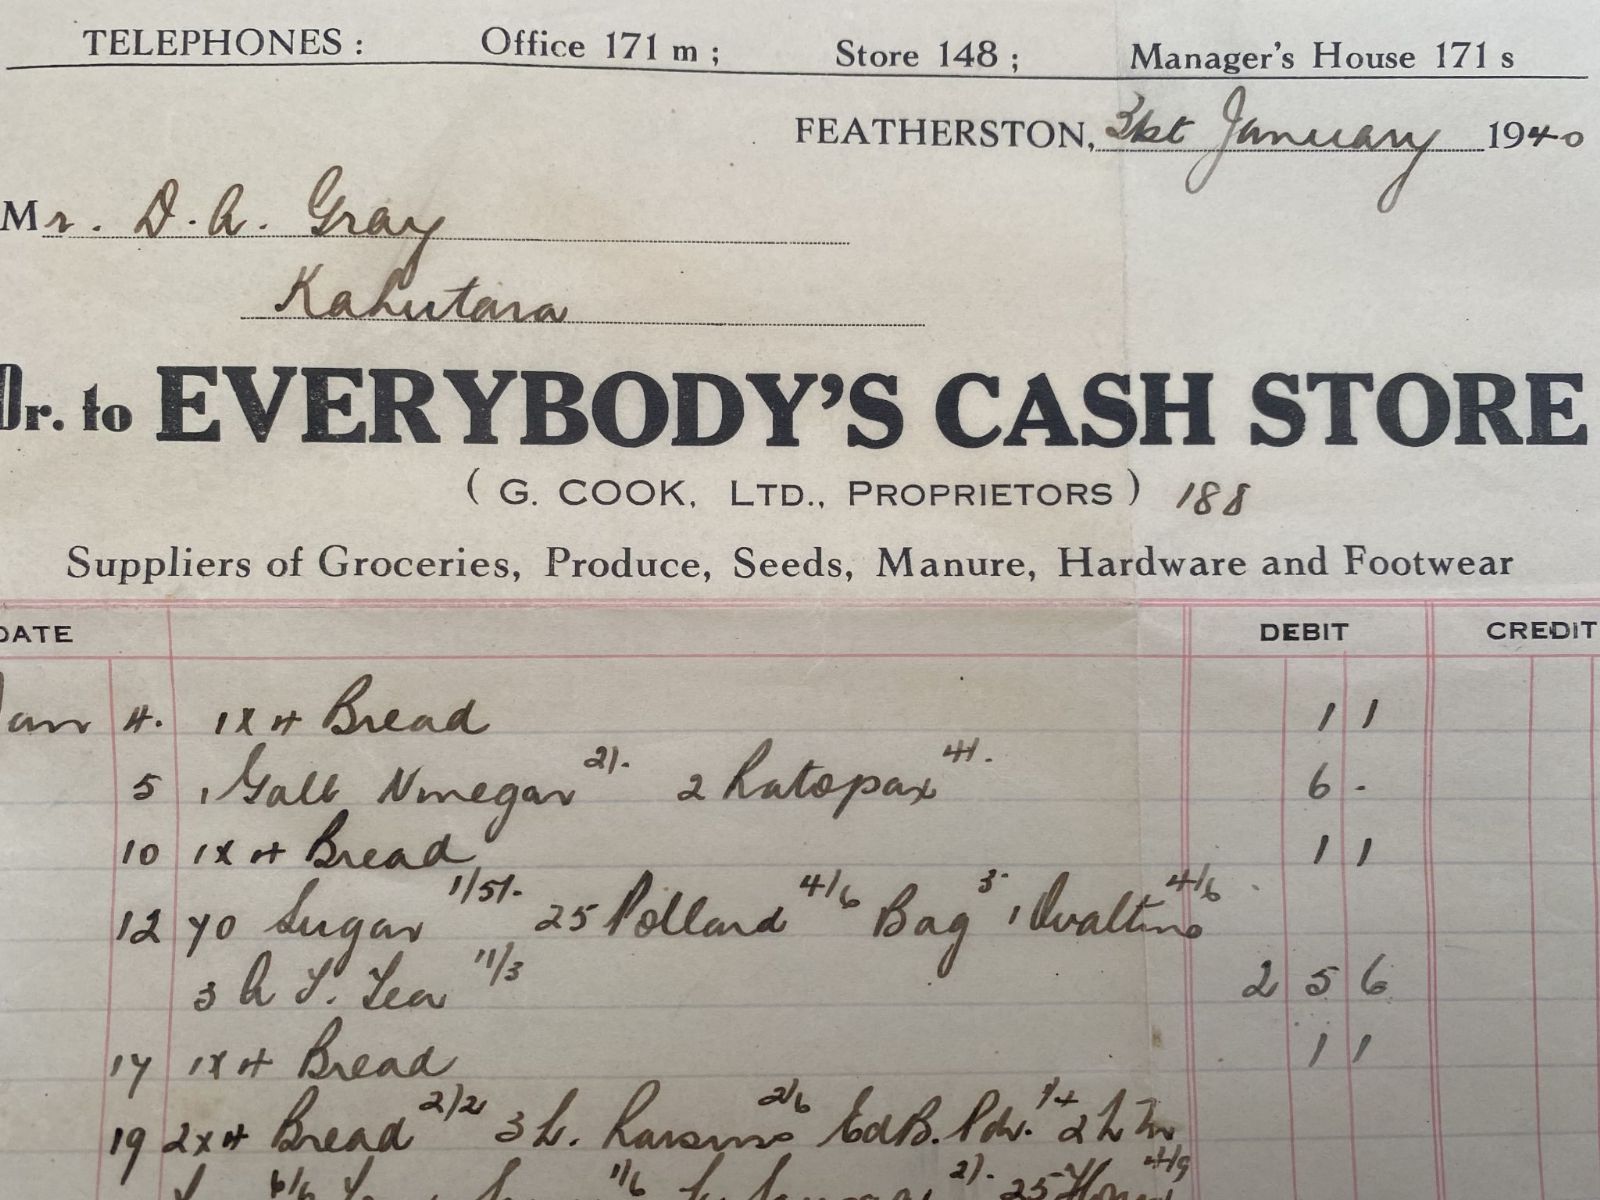 TELEPHONES: Office 171 m; Store 148; Manager's House 171 s
FEATHERSTON, 31st January 1940
Mr. D. A. Gray
Kahutara
Dr. to EVERYBODY'S CASH STORE
( G. COOK, LTD., PROPRIETORS ) 188
Suppliers of Groceries, Produce, Seeds, Manure, Hardware and Footwear
DATE DEBIT CREDIT
Jan 4. 1x4 Bread 1 1
5 1 Gall Vinegar 2/- 2 4/- 6 -
10 1x4 Bread 1 1
12 70 Sugar 1/5/- 25 Pollard 4/6 Bag 3 1 Ovaltine 4/6
3 A T. Tea 11/3 2 5 6
17 1x4 Bread 1 1
19 2x4 Bread 2/2 3 L. 2/6 EdB. Pdr. 1/4 2 L
6/6 1/6 2/- 25 Honey 4/9